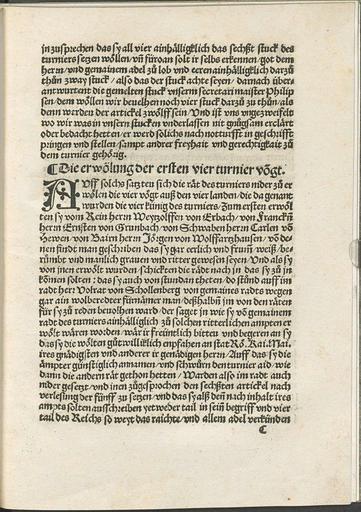 in zusprechen das sy all vier ainhälligklich das sechßt stuck des
turniers setzen wöllen / vñ füroan solt ir selbs erkennen / got dem
herrn / vnd gemainem adel zů lob vnd eeren ainhälligklich darzů
thůn zway stuck / also das der stuck achte seyen / darnach über-
antwurtent die gemelten stuck vnserm secretari maister Philip
sen / dem wöllen wir beuelhen noch vier stuck darzů zu thůn / als
denn werden der artickel zwölff sein Vnd ist vns vngezweifelt
wo wir was in vnsern stucken vnderlassen nit gnůgsam erklärt
oder bedacht hetten / er werd solichs nach notturfft in geschrifft
pringen vnd stellen / sampt andrer freyhait vnd gerechtigkait zů
dem turnier gehörig.
¶ Die erwölung der ersten vier turnier vögt.
AVff solchs satzten sich die rät des turniers nider zů er
wölen die vier vögt auß den vier landen / die da genant
wurden die vier künig des turniers / Zum ersten erwöl
ten sy vom Rein herrn Weyzolffen von Erbach / von Franckñ
herrn Ernsten von Grunbach / von Schwaben herrn Carlen võ
Hewen / von Bairn herrn Jörgen von Wolffartzhausen / võ de
nen findt man geschriben das sy gar erlich vnd frum̃ / weiß / be-
rümbt vnd manlich grauen vnd ritter gewesen seyen / Vnd als sy
von jnen erwölt wurden / schickten die rädt nach jn das sy zů jn
kõmen solten : das sy auch von stundan theten / do stůnd auff im
radt herr Volrat von Schollenberg von gemaines radts wegen
gar ain wolberedter fürnämer man / deßhalbñ jm von den räten
für sy zů reden beuolhen ward / der saget jn wie sy võ gemainem
radt des turniers ainhälligklich zů solchen ritterlichen ampten er
wölt wären worden / wär ir freüntlich bitten vnd begeren an sy
das sy die wölten gůtwilligklich empfahen an stat Rö. Kai. Mai.
ires gnädigsten vnd anderer ir genädigen herrn / Auff das sy die
ämpter günstigklich annamen / vnd schwůren den turner aid / wie
dann die andern rät gethon hetten / Warden also im radt auch
nider gesetzt / vnd jnen zůgesprochen den sechßten artickel nach
verlesung der fünff zu setzen / vnd das sy alß deñ nach inhalt ires
amptes solten ausschreiben yetweder tail in sein̄ begriff vnd vier
tail des Reichs so weyt das raichte / vnd allem adel verkünden
C